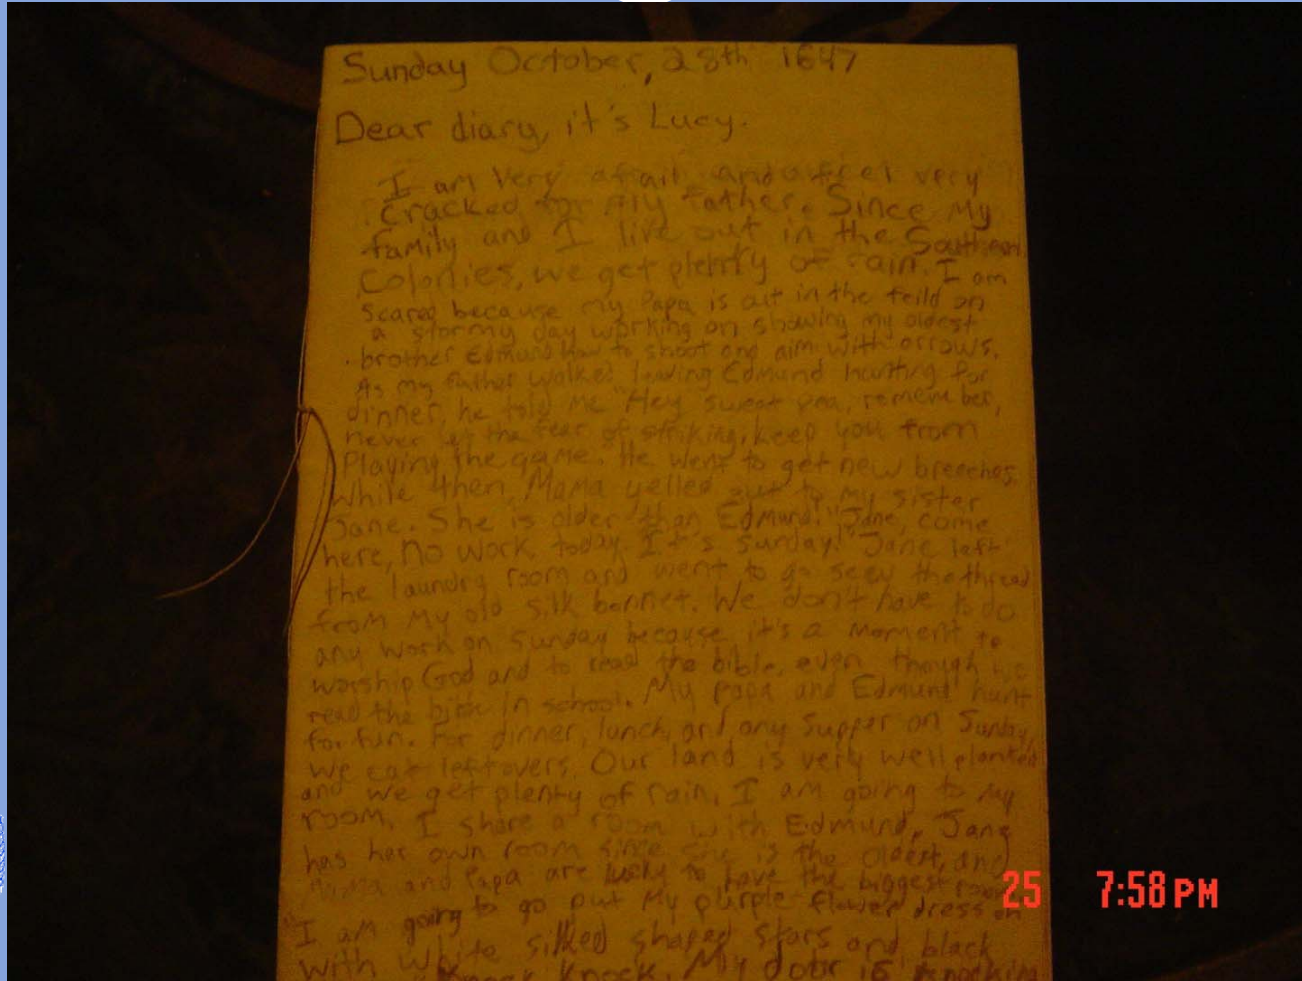 Sunday October, 28th 1647
Dear diary, it's Lucy.
I am very afrait and feel very
cracked for My father. Since My
family and I live out in the Southern
Colonies, we get plenty of rain. I am
scared because my Papa is out in the feild on
a stormy day working on showing my oldest
brother Edmund how to shoot and aim with arrows.
As my father walked leaving Edmund hunting for
dinner, he told me "Hey sweet pea, remember,
never let the fear of striking, keep you from
Playing the game. He went to get new breeches.
While then, Mama yelled out to my sister
Jane. She is older than Edmund. "Jane, come
here, no work today. It's Sunday!" Jane left
the laundry room and went to go sew the thread
from My old silk bonnet. We don't have to do
any work on Sunday because it's a Moment to
worship God and to read the bible, even though we
read the bible in school. My Papa and Edmund hunt
for fun. For dinner, lunch, and any Supper on Sunday,
we eat leftovers. Our land is very well planted
and we get plenty of rain. I am going to My
room. I share a room with Edmund. Jane
has her own room since she is the oldest, and
Mama and Papa are lucky to have the biggest room
I am going to go put My purple flower dress on
with white silked shaped stars and black
Knock. My door is knocking
25 7:58 PM